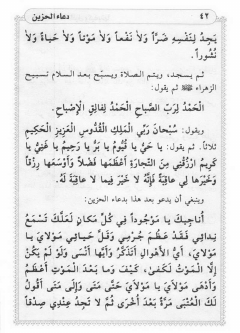 ٤٢ دعاء الحزين
يَجِدُ لِنَفْسِهِ ضَرّاً وَلَا نَفْعاً وَلَا مَوْتاً وَلَا حَيَاةً وَلَا
نُشُوراً.
ثم يسجد، ويتم الصلاة ويسبّح بعد السلام تسبيح
الزهراء ثم يقول:
الْحَمْدُ لِرَبِّ الصَّبَاحِ الْحَمْدُ لِفَالِقِ الْإِصْبَاحِ.
ويقول: سُبْحَانَ رَبِّيَ الْمَلِكِ الْقُدُّوسِ الْعَزِيزِ الْحَكِيمِ
ثلاثاً. ثم يقول: يَا حَيُّ يَا قَيُّومُ يَا بَرُّ يَا رَحِيمُ يَا غَنِيُّ يَا
كَرِيمُ ارْزُقْنِي مِنَ التِّجَارَةِ أَعْظَمَهَا فَضْلاً وَأَوْسَعَهَا رِزْقاً
وَخَيْرَهَا لِي عَاقِبَةً فَإِنَّهُ لَا خَيْرَ فِيمَا لَا عَاقِبَةَ لَهُ.
وينبغي أن يدعو بعد هذا بدعاء الحزين:
أُنَاجِيكَ يَا مَوْجُوداً فِي كُلِّ مَكَانٍ لَعَلَّكَ تَسْمَعُ
نِدَائِي فَقَدْ عَظُمَ جُرْمِي وَقَلَّ حَيَائِي مَوْلَايَ يَا
مَوْلَايَ، أَيَّ الْأَهْوَالِ أَتَذَكَّرُ وَأَيَّهَا أَنْسَى وَلَوْ لَمْ يَكُنْ
إِلَّا الْمَوْتُ لَكَفَى، كَيْفَ وَمَا بَعْدَ الْمَوْتِ أَعْظَمُ
وَأَدْهَى مَوْلَايَ يَا مَوْلَايَ حَتَّى مَتَى وَإِلَى مَتَى أَقُولُ
لَكَ الْعُتْبَى مَرَّةً بَعْدَ أُخْرَى ثُمَّ لَا تَجِدُ عِنْدِي صِدْقاً